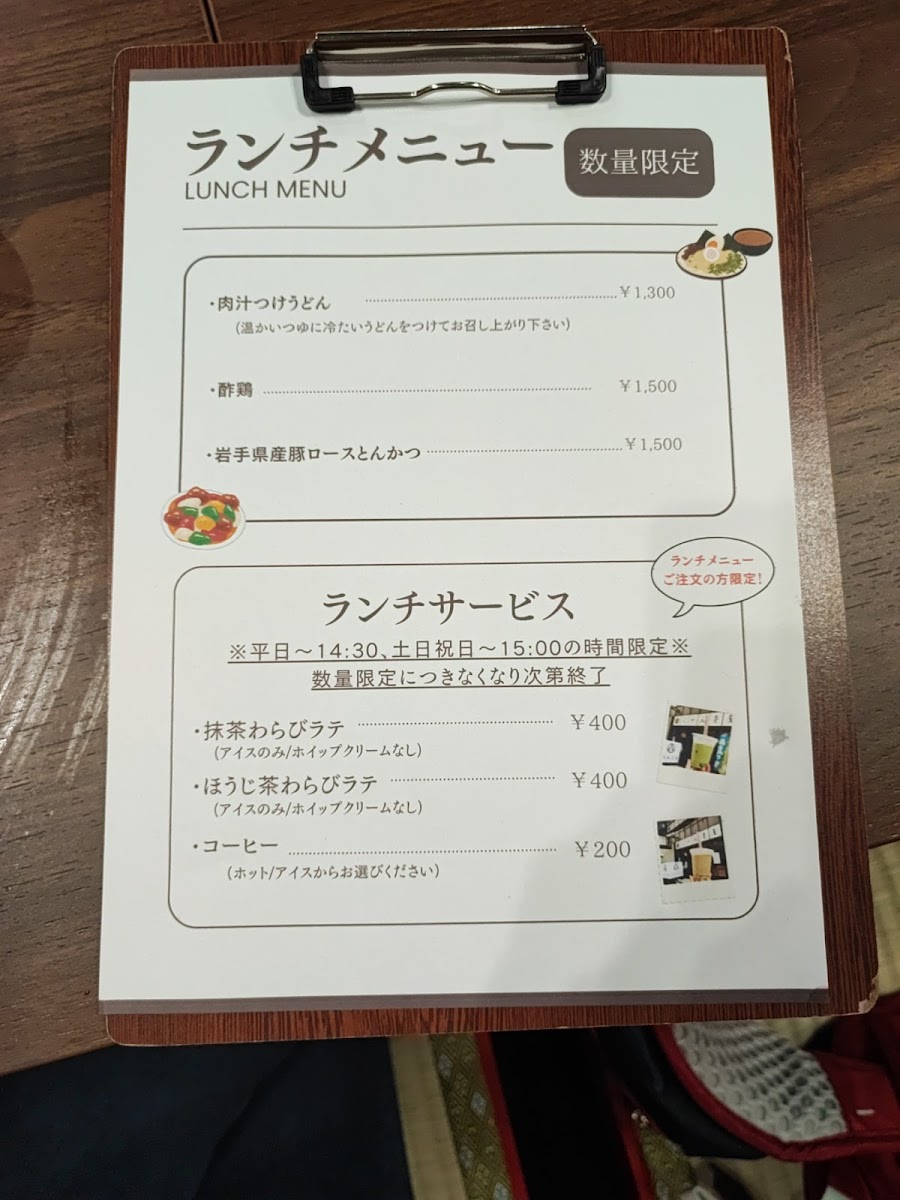 ランチメニュー
数量限定
LUNCH MENU
・肉汁つけうどん ¥1,300
(温かいつゆに冷たいうどんをつけてお召し上がり下さい)
・酢鶏 ¥1,500
・岩手県産豚ロースとんかつ ¥1,500
ランチメニュー
ご注文の方限定!
ランチサービス
※平日~14:30、土日祝日~15:00の時間限定※
数量限定につきなくなり次第終了
・抹茶わらびラテ ¥400
(アイスのみ/ホイップクリームなし)
・ほうじ茶わらびラテ ¥400
(アイスのみ/ホイップクリームなし)
・コーヒー ¥200
(ホット/アイスからお選びください)